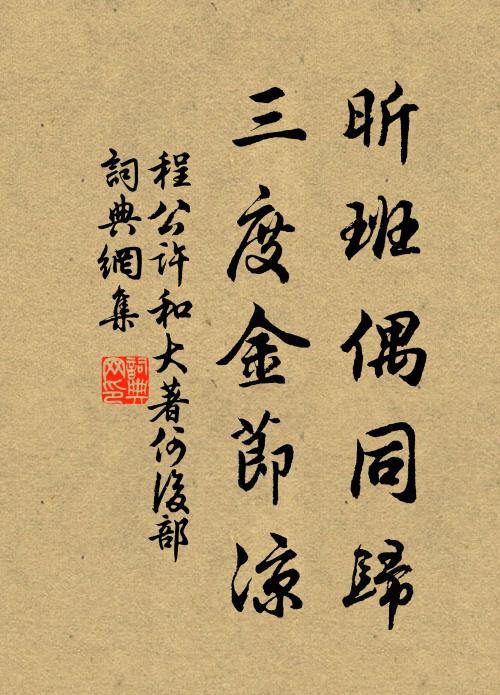 昕班偶同歸
三度金節涼
程公許和大著何後部
詞典網集
詞典網印